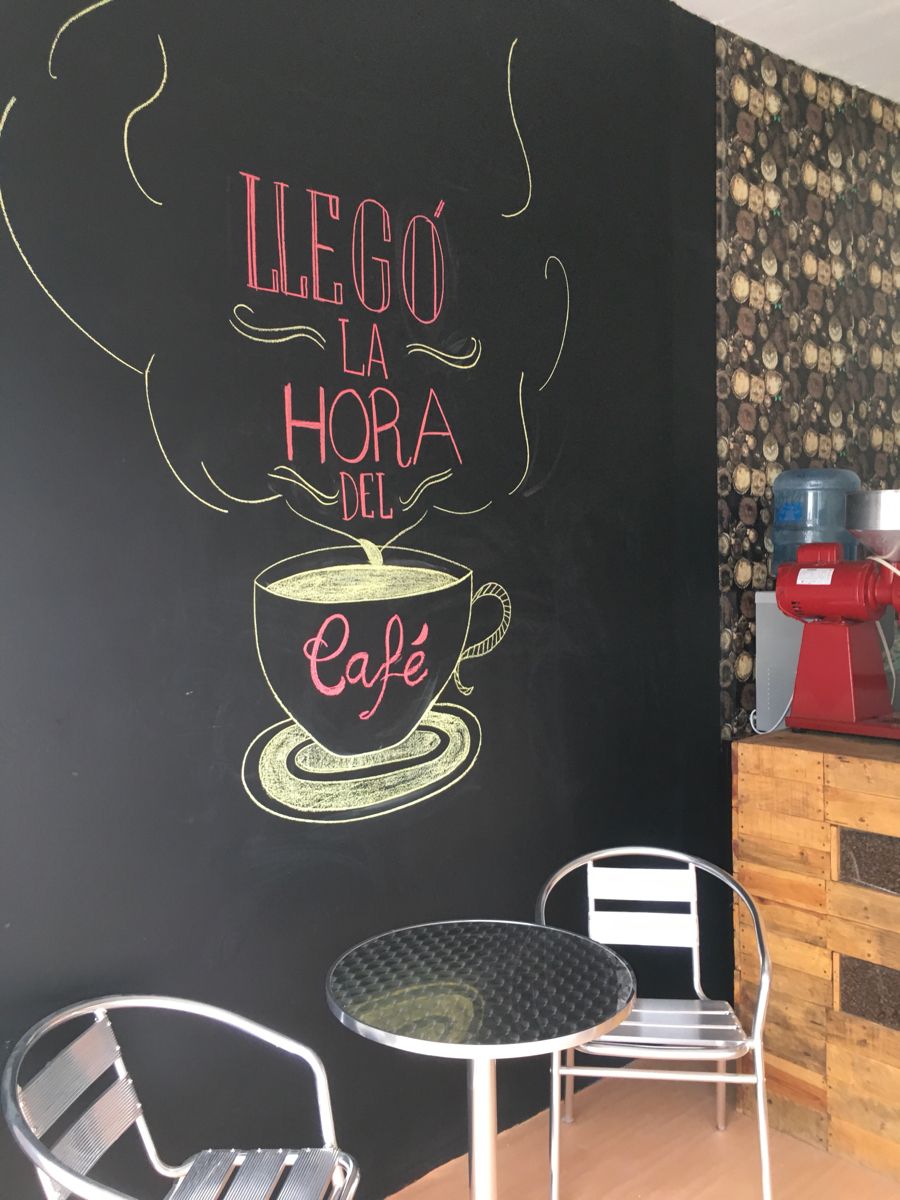 LLEGÓ
LA
HORA
DEL
Café